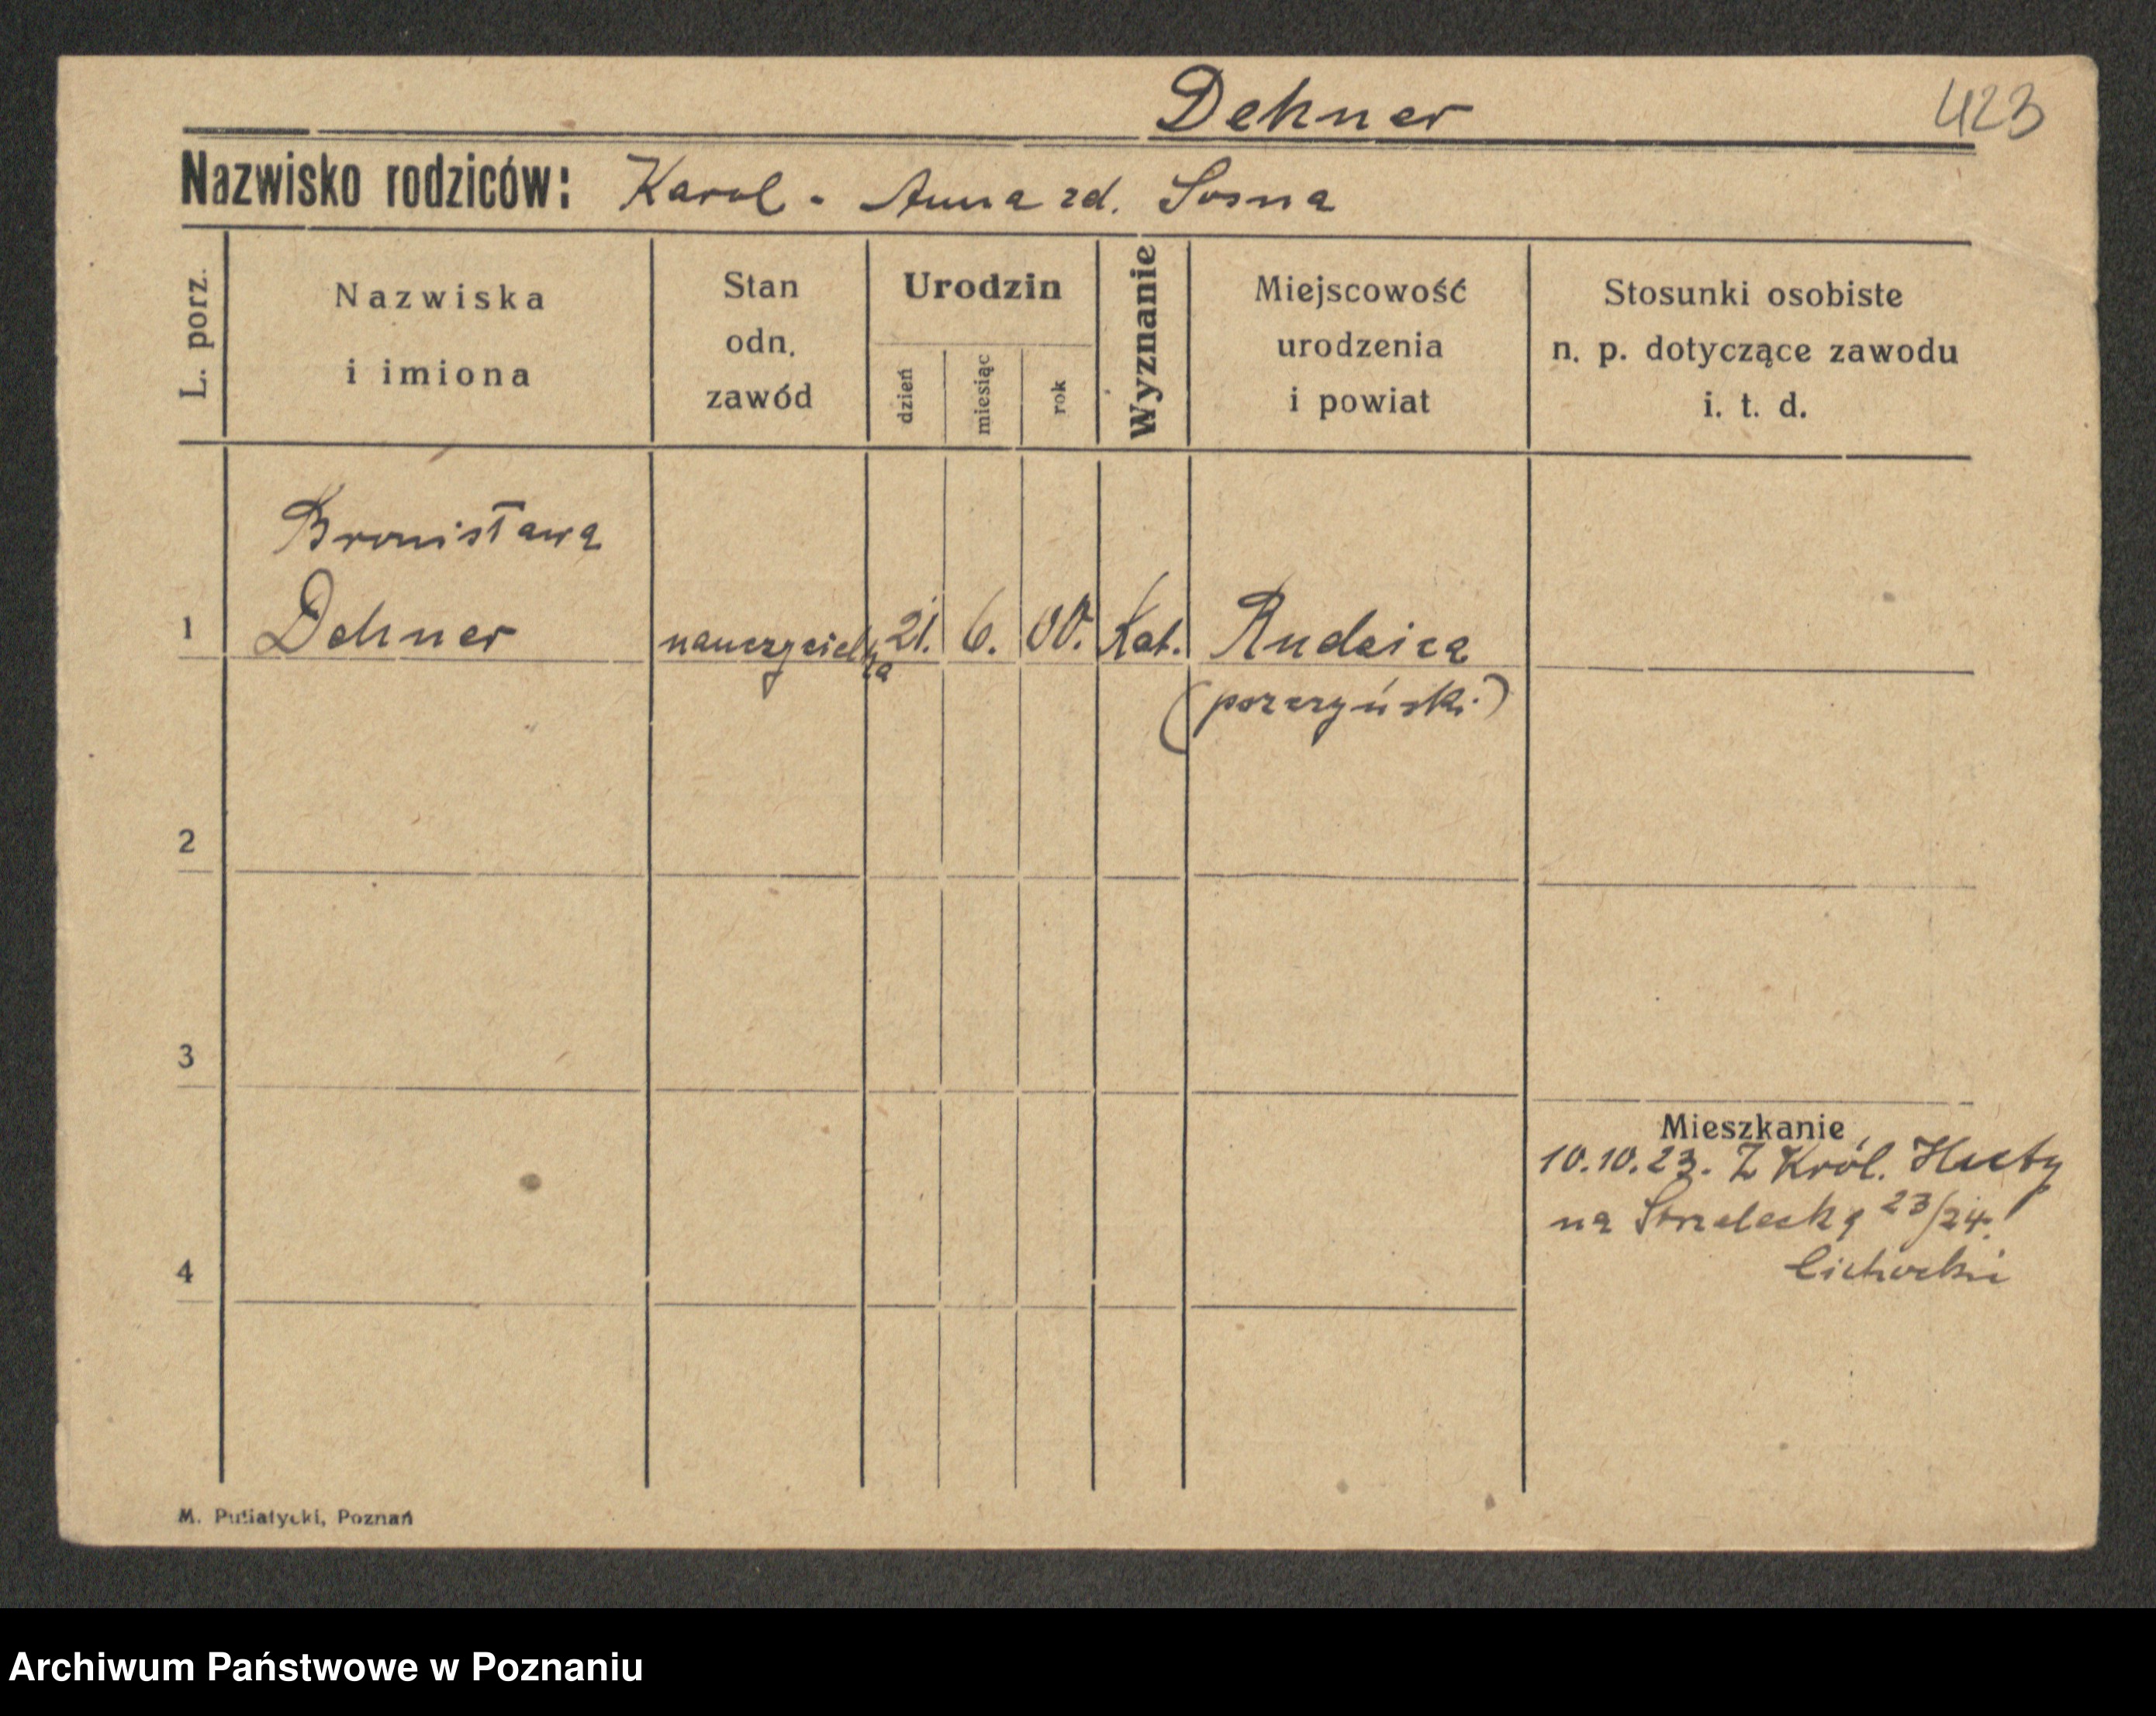 Dehner
423
Nazwisko rodziców: Karol - Anna zd. Sosna
L. porz.
Nazwiska
i imiona
Stan
odn.
zawód
Urodzin
dzień
miesiąc
rok
Wyznanie
Miejscowość
urodzenia
i powiat
Stosunki osobiste
n. p. dotyczące zawodu
i. t. d.
Bronisława
1 Dehner nauczycielka 21. 6. 00. Kat. Rudzica
(pszczyński)
2
3
Mieszkanie
10.10.23. Z Król. Huty
na Strzelecką 23/24.
Cichocki
4
M. Putiatycki, Poznań
Archiwum Państwowe w Poznaniu